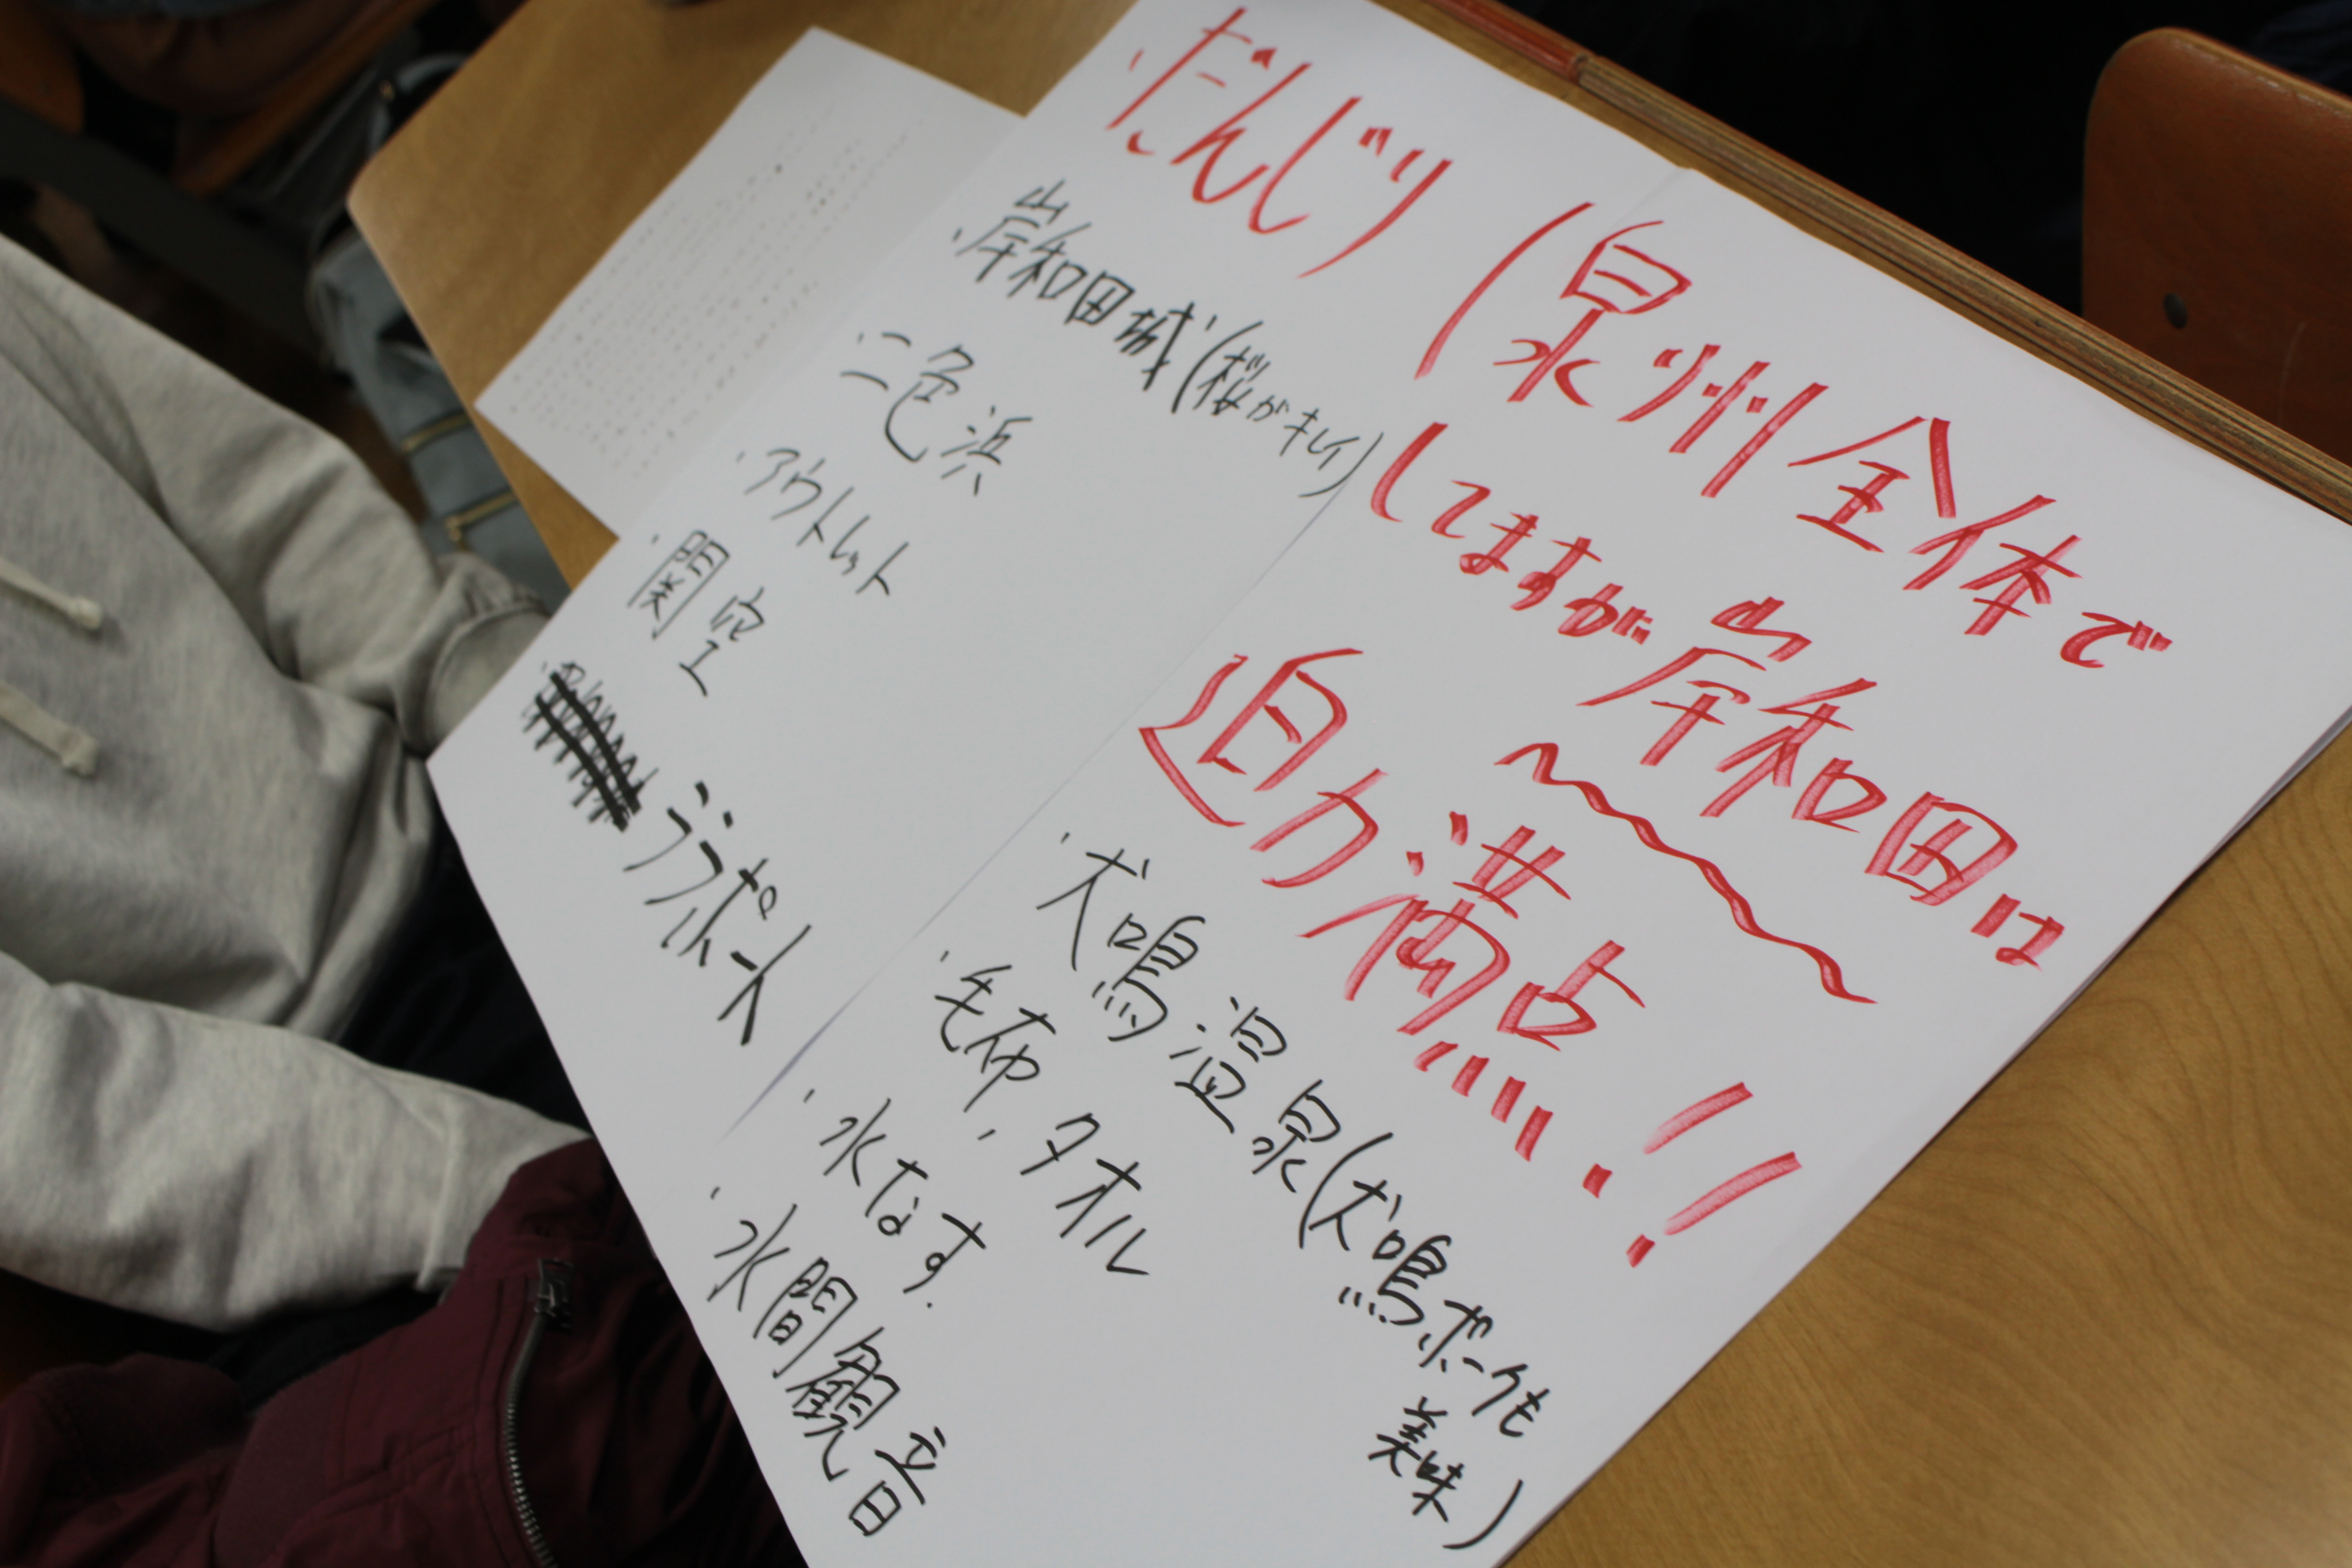 ・だんじり(泉州全体で
してますが岸和田は
迫力満点!!
・岸和田城(桜がキレイ)
・二色浜
・アウトレット
・関空
ララポート
・犬鳴温泉(犬鳴ポークも
美味)
・毛布,タオル
・水なす.
・水間観音